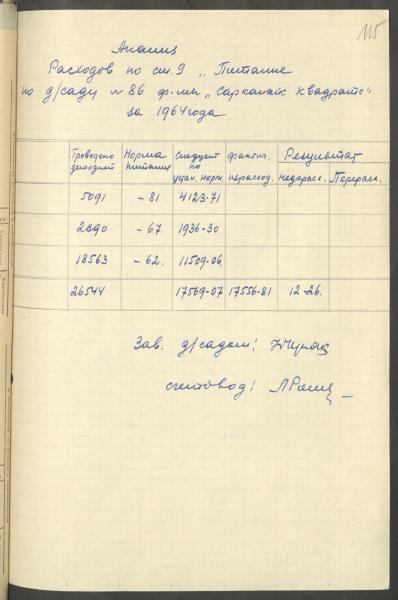 115
Анализ
Расходов по ст. 9 „Питание
по д/саду № 86 ф-мы „Сарканайс квадратс“
за 1964 года
Проведено детодней | Норма питания | Следует по устан. норм. | фактич. израсход. | Результат
недорасх. | Перерасх.
5091 | - 81 | 4123-71
2890 | - 67 | 1936-30
18563 | - 62. | 11509-06
26544 | 17569-07 | 17556-81 | 12-26.
Зав. д/садом:
счетовод: